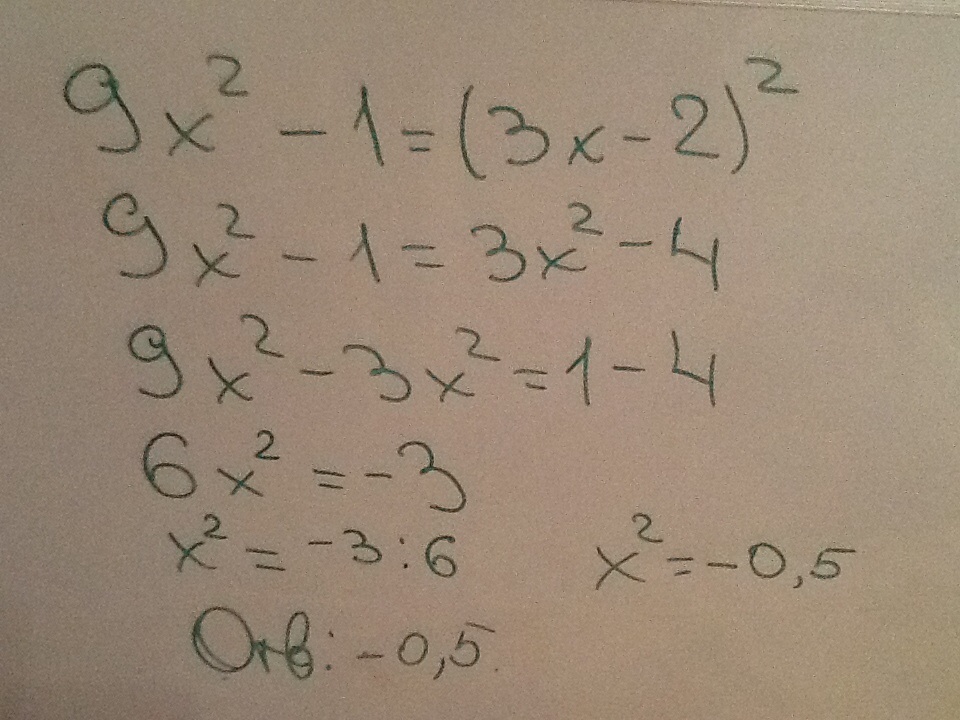 9x² - 1 = (3x - 2)²
9x² - 1 = 3x² - 4
9x² - 3x² = 1 - 4
6x² = -3
x² = -3 : 6 x² = -0,5
Отв: -0,5.